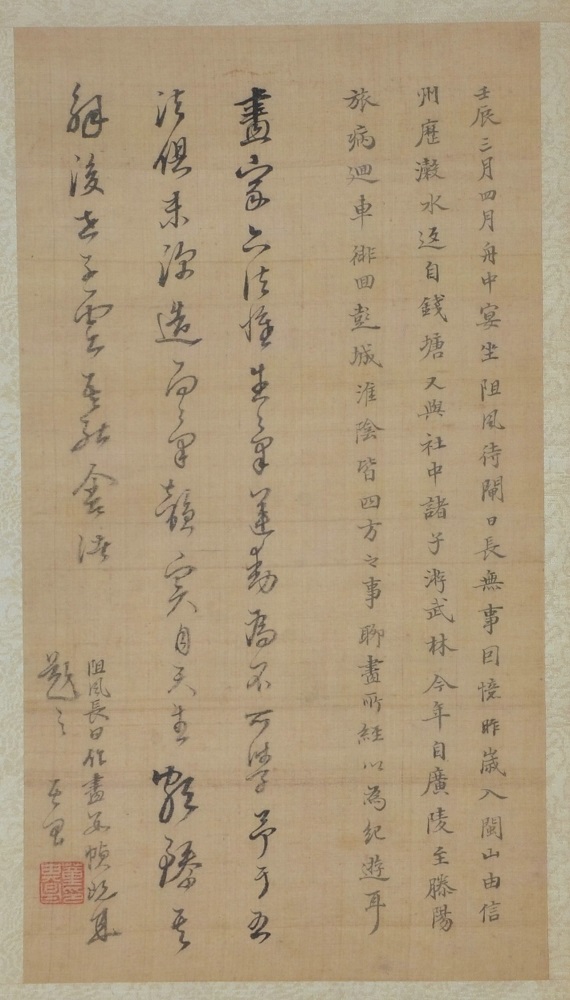 壬辰三月四月舟中宴坐阻風待閘日長無事回憶昨歲入閩山由信
州歷瀫水返自錢塘又與社中諸子游武林今年自廣陵至滕陽
旅病迴車徘回彭城淮陰皆四方之事聊畫所經以為紀遊耳
畫家六法惟生氣運動為不可學予于五
法俱未深造而氣韻實自天生頗臻其
解後世子雲
阻風長日作畫幀既成
題之其昌